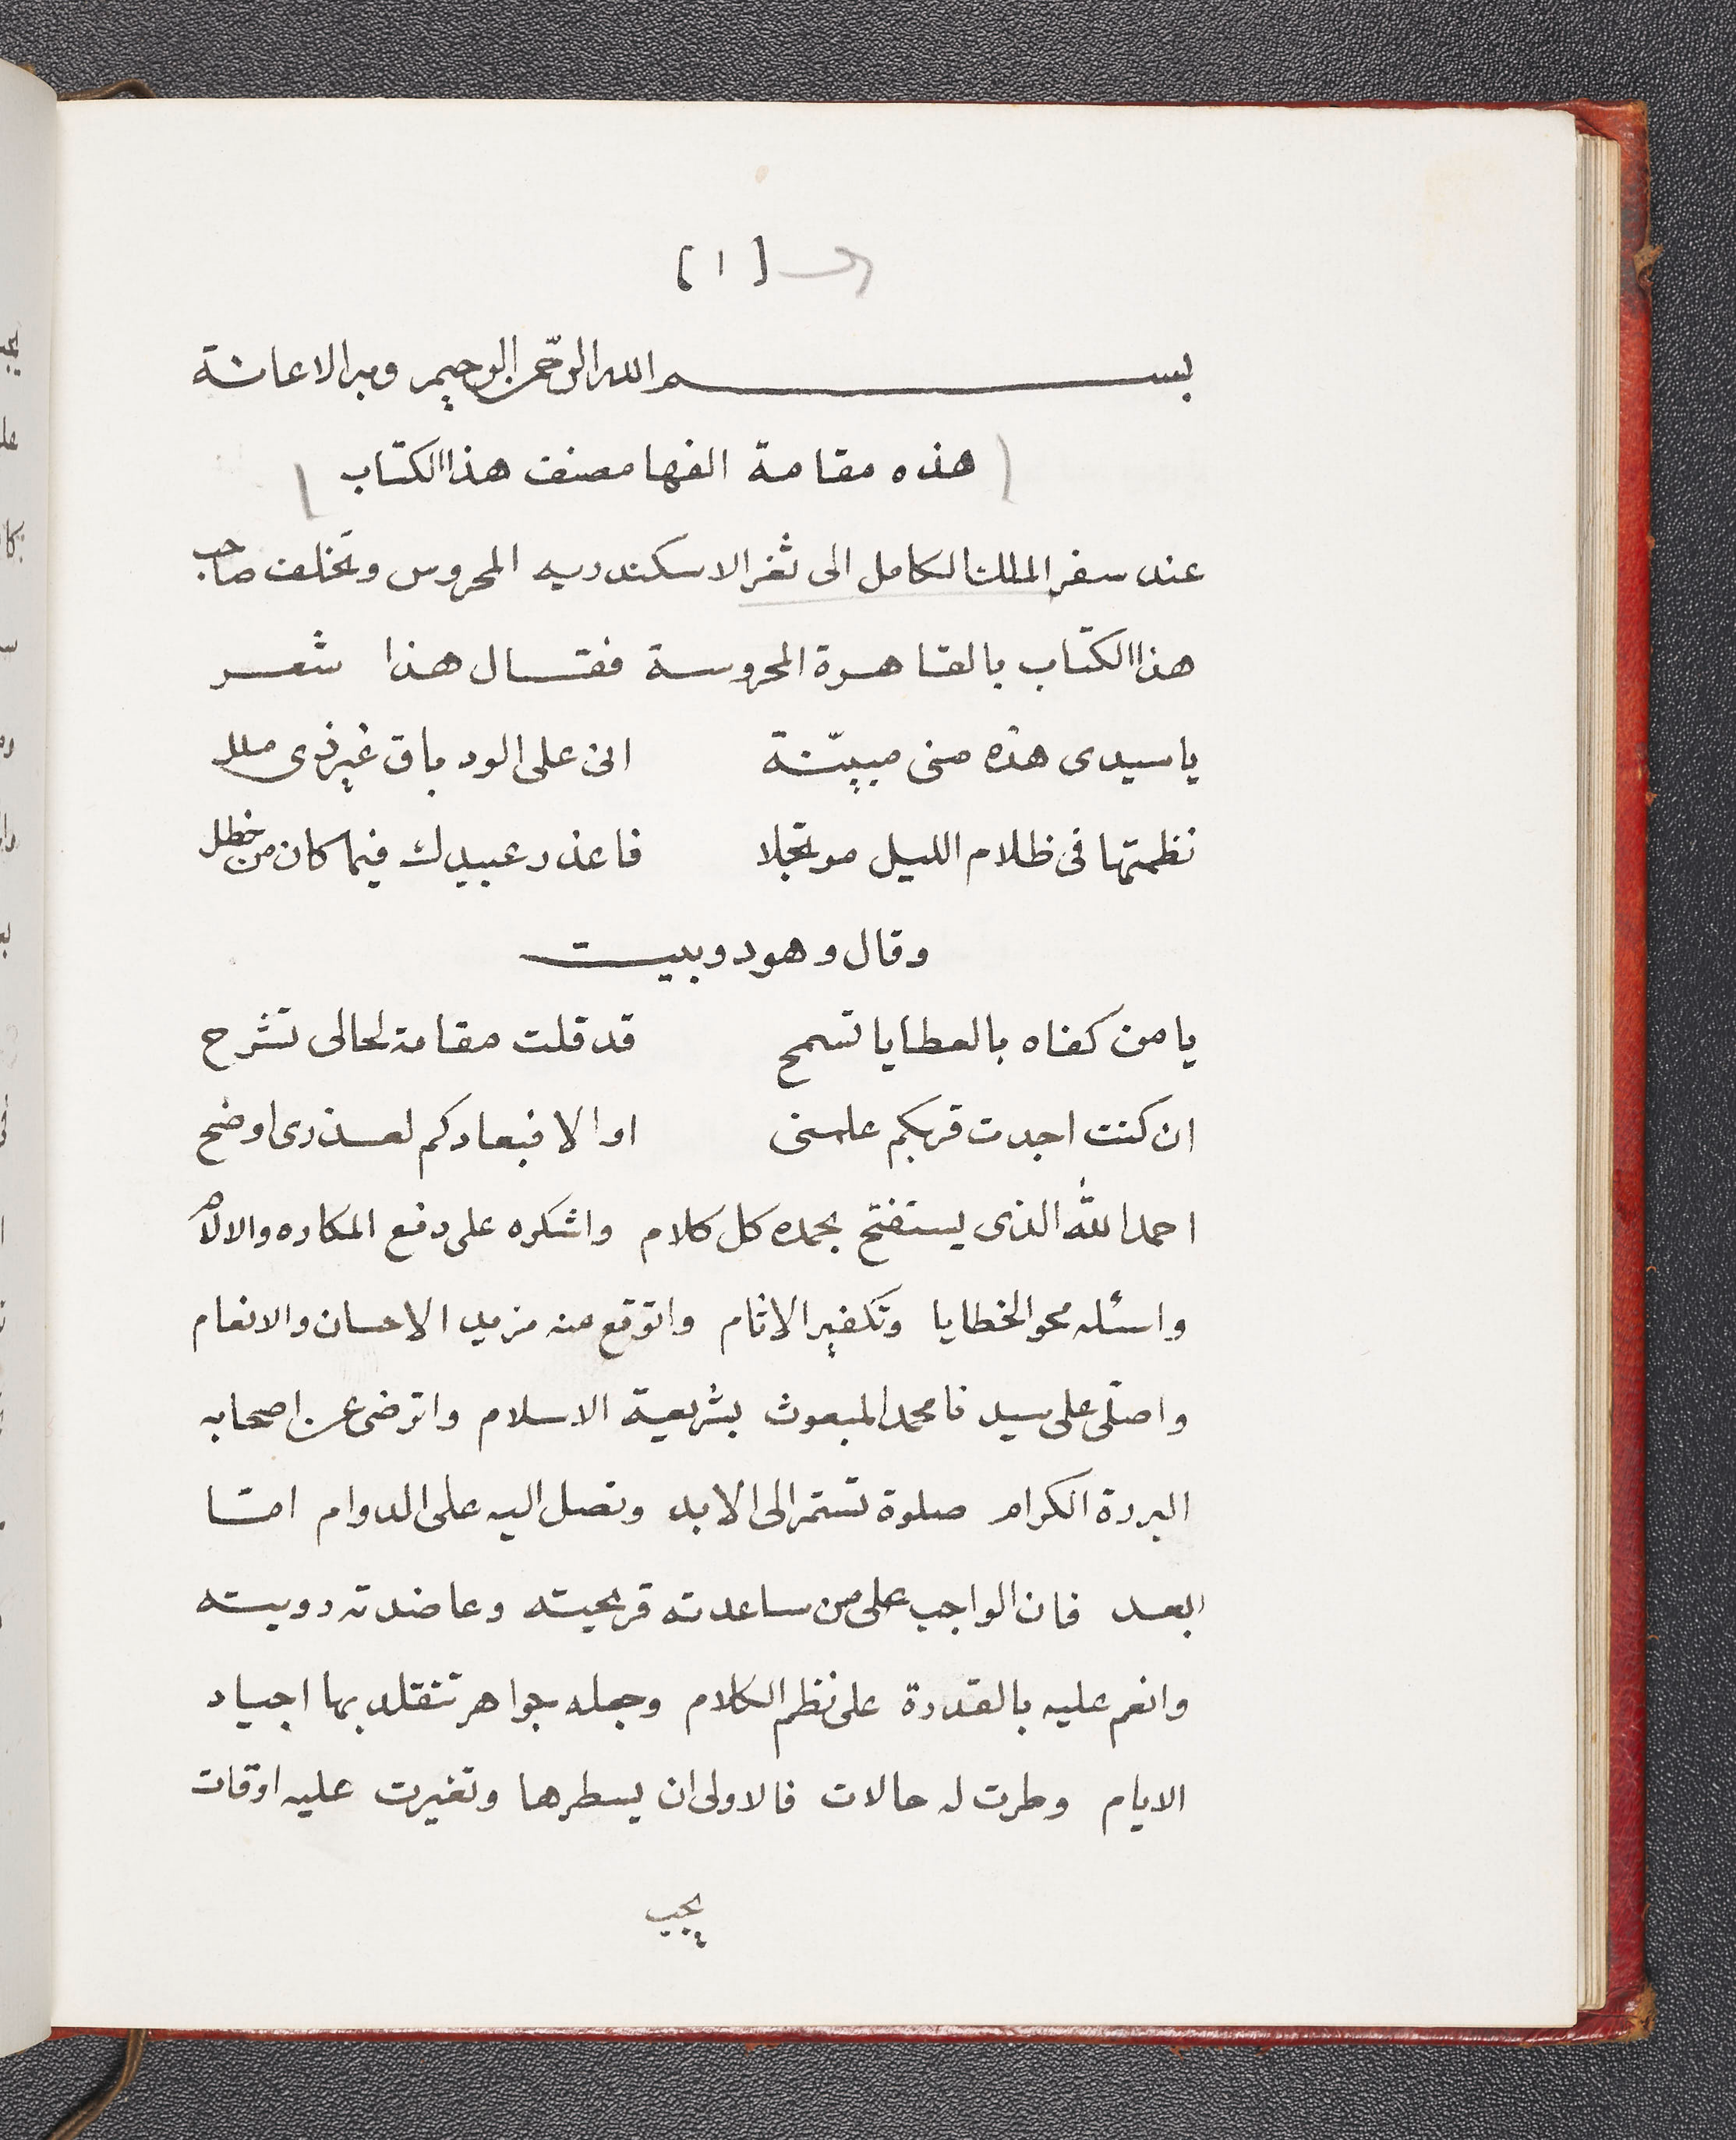 [ ١ ]
بسم الله الرحمن الرحيم وبه الاعانة
هذه مقامة الفها مصنف هذا الكتاب
عند سفر الملك الكامل الى ثغر الاسكندريه المحروس وتخلف صاحب
هذا الكتاب بالقاهرة المحروسة فقال هذا شعر
يا سيدى هذه منى مبيّنة انى على الود باق غير ذى ملل
نظمتها فى ظلام الليل مرتجلا فاعذر عبيدك فيما كان من خطل
وقال وهو دوبيت
يا من كفاه بالعطايا تسمح قد قلت مقامة لحالى تشرح
ان كنت اجدت قربكم علمنى او الا فبعادكم لعذرى اوضح
احمد الله الذى يستفتح بحمده كل كلام واشكره على دفع المكاره والالام
واسئله محو الخطايا وتكفير الاثام واتوقع منه مزيد الاحسان والانعام
واصلّى على سيدنا محمد المبعوث بشريعة الاسلام واترضى عن اصحابه
البررة الكرام صلوة تستمر الى الابد وتصل اليه على الدوام امّا
بعد فان الواجب على من ساعدته قريحيته وعاضدته رويته
وانعم عليه بالقدرة على نظم الكلام وجعله جواهر تتقلد بها اجياد
الايام وطرت له حالات فالاولى ان يسطرها وتغيرت عليه اوقات
يجب